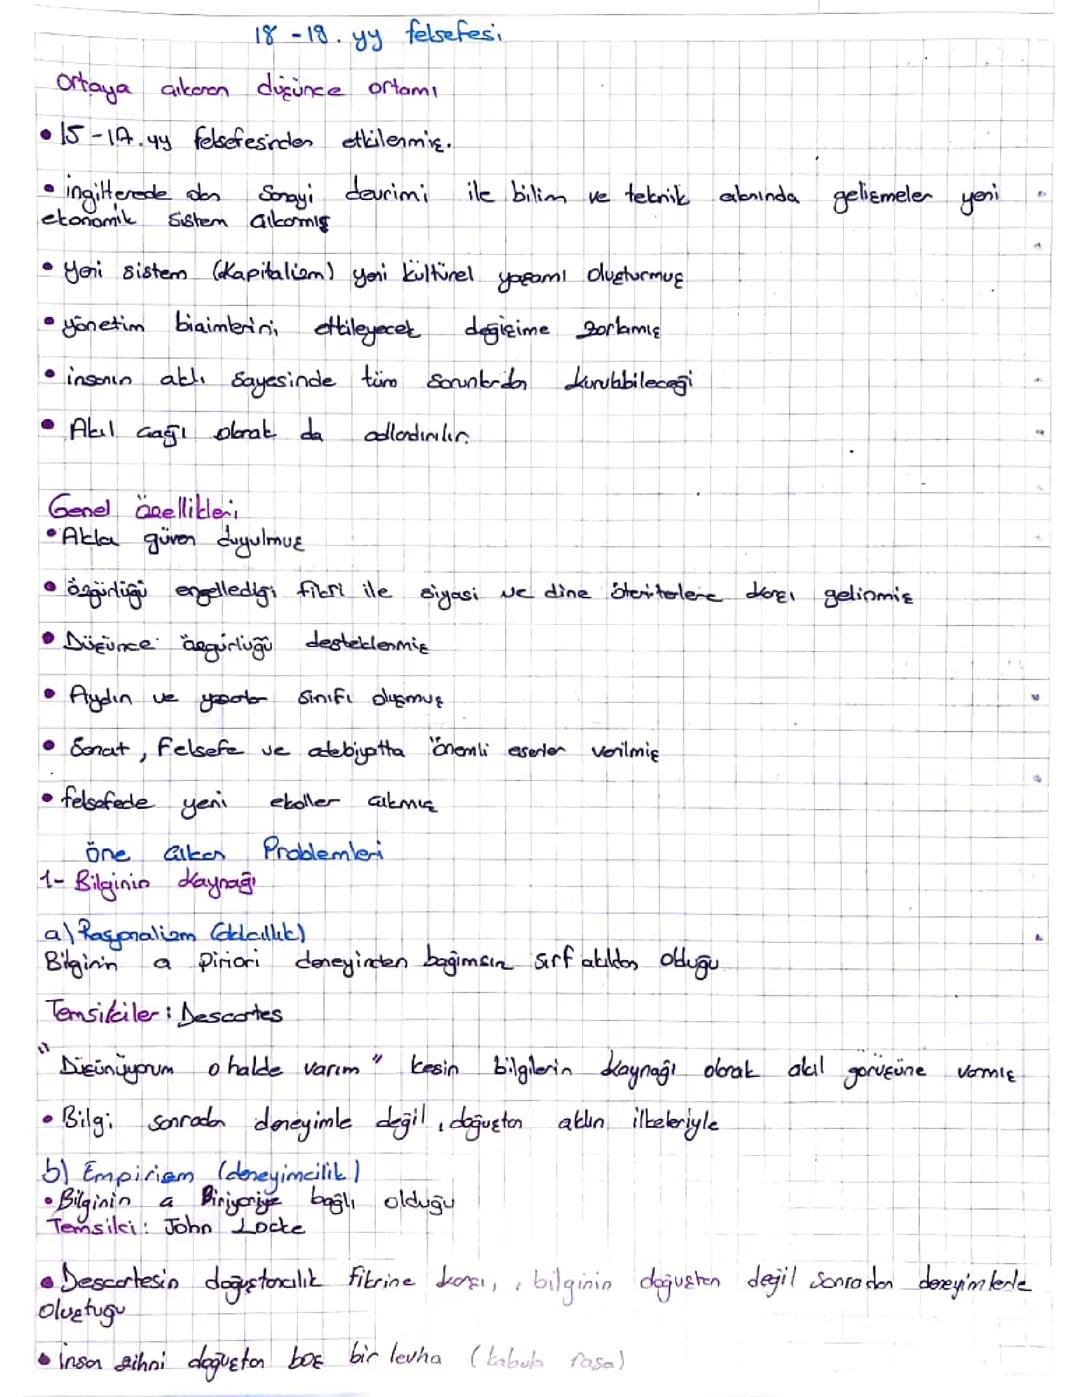 18-19. yy felsefesi
Ortaya çıkaran düşünce ortamı
• 15-17. yy felsefesinden etkilenmiş.
• ingilterede olan Sanayi devrimi ile bilim ve teknik alanında gelişmeler yeni
ekonomik sistem çıkarmış
• Yeni sistem (Kapitalizm) yeni kültürel yaşamı oluşturmuş
• yönetim biçimlerini etkileyecek değişime zorlamış
• insanın aklı sayesinde tüm sorunlardan kurulabileceği
• Akıl çağı olarak da adlandırılır.
Genel özellikleri
• Akla güven duyulmuş
• özgürlüğü engellediği fikri ile siyasi ve dine otoriterlere karşı gelinmiş
• Düşünce özgürlüğü desteklenmiş
• Aydın ve yazarlar sınıfı oluşmuş
• Sanat, Felsefe ve edebiyatta önemli eserler verilmiş
• felsefede yeni ekoller çıkmış
öne çıkan Problemleri
1- Bilginin kaynağı
a) Rasyonalizm (akılcılık)
Bilginin a piriori deneyinden bağımsız sırf akıldan olduğu
Temsilciler: Descartes
"Düşünüyorum o halde varım" kesin bilgilerin kaynağı olarak akıl görüşüne varmış
• Bilgi sonradan deneyimle değil, doğuştan aklın ilkeleriyle
b) Empirizm (deneyimcilik)
• Bilginin a bağlı olduğu
Temsilci: John Locke
• Descartesin doğuştancılık fikrine karşı, , bilginin doğuştan değil sonradan deneyimlerle
oluştuğu
• insan zihni doğuştan boş bir levha (tabula rasa)